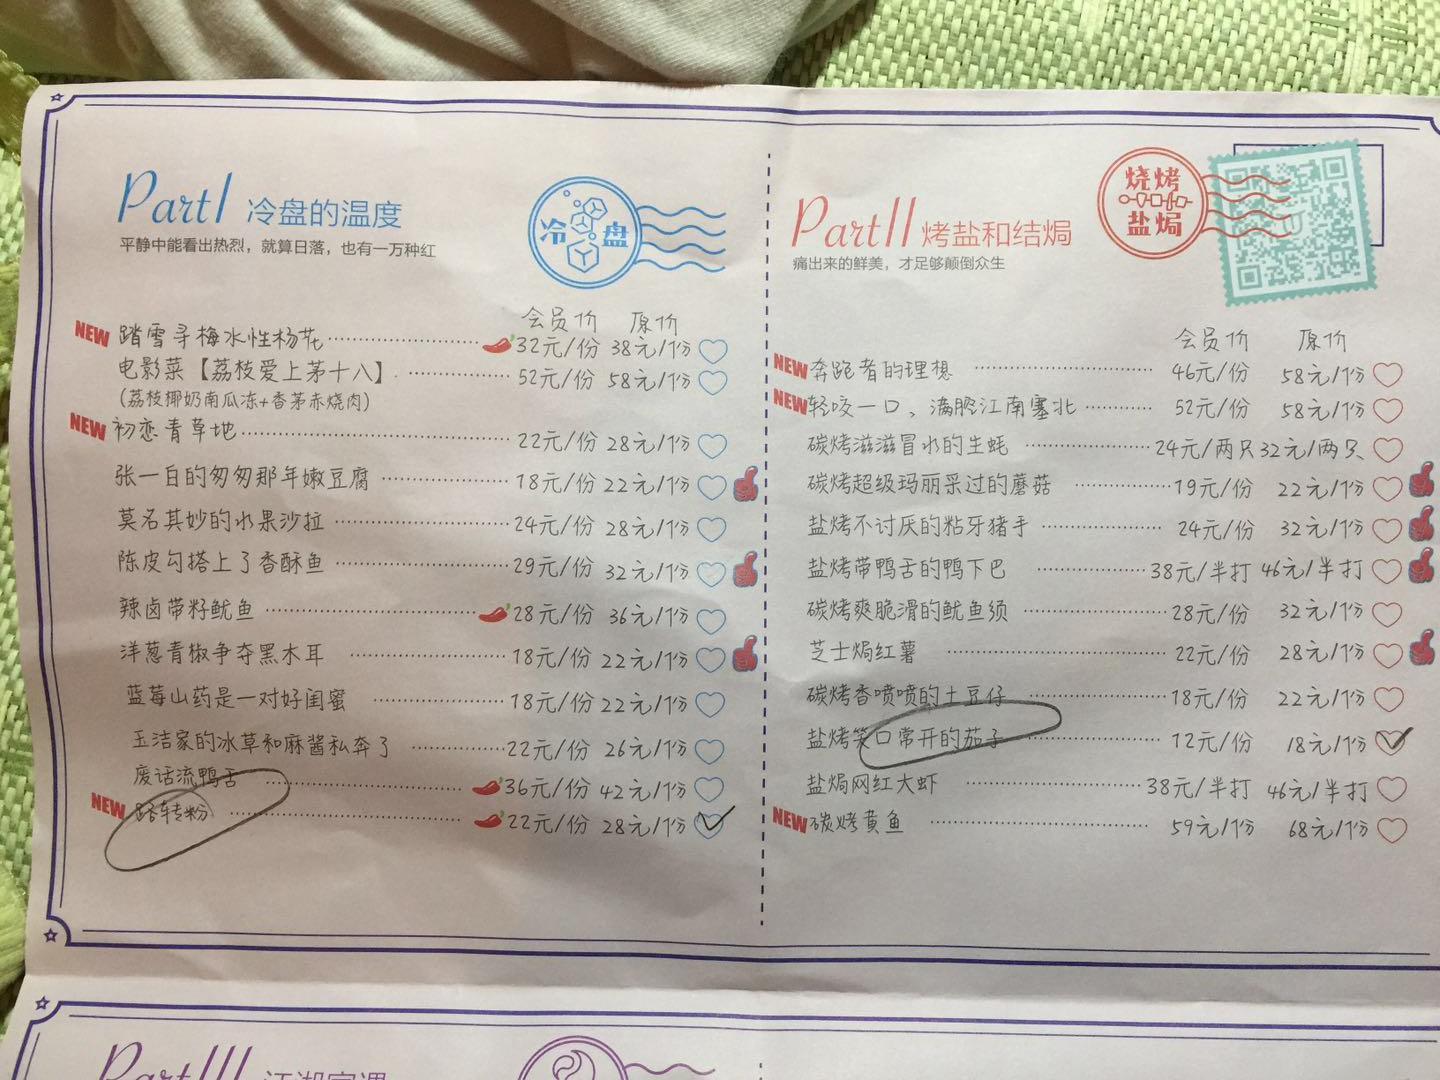 PartⅠ 冷盘的温度
平静中能看出热烈，就算日落，也有一万种红
冷盘
会员价 原价
NEW 踏雪寻梅水性杨花 32元/份 38元/份
电影菜【荔枝爱上茅十八】 52元/份 58元/份
(荔枝椰奶南瓜冻+香茅赤烧肉)
NEW 初恋青草地 22元/份 28元/份
张一白的匆匆那年嫩豆腐 18元/份 22元/份
莫名其妙的水果沙拉 24元/份 28元/份
陈皮勾搭上了香酥鱼 29元/份 32元/份
辣卤带籽鱿鱼 28元/份 36元/份
洋葱青椒争夺黑木耳 18元/份 22元/份
蓝莓山药是一对好闺蜜 18元/份 22元/份
玉洁家的冰草和麻酱私奔了 22元/份 26元/份
废话流鸭舌 36元/份 42元/份
NEW 路转粉 22元/份 28元/份
PartⅡ 烤盐和结焗
痛出来的鲜美，才足够颠倒众生
烧烤
盐焗
会员价 原价
NEW 奔跑者的理想 46元/份 58元/份
NEW 轻咬一口、满腔江南塞北 52元/份 58元/份
碳烤滋滋冒水的生蚝 24元/两只 32元/两只
碳烤超级玛丽采过的蘑菇 19元/份 22元/份
盐烤不讨厌的粘牙猪手 24元/份 32元/份
盐烤带鸭舌的鸭下巴 38元/半打 46元/半打
碳烤爽脆滑的鱿鱼须 28元/份 32元/份
芝士焗红薯 22元/份 28元/份
碳烤香喷喷的土豆仔 18元/份 22元/份
盐烤笑口常开的茄子 12元/份 18元/份
盐焗网红大虾 38元/半打 46元/半打
NEW 碳烤黄鱼 59元/份 68元/份
PartⅢ 江湖